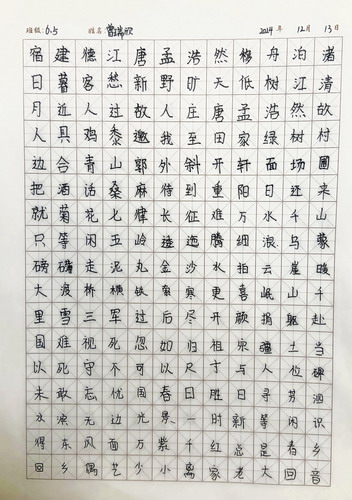 班级:6.5 姓名 曹瑞欣 2024 年 12 月 13 日
宿建德江唐孟浩然移舟泊渚
日暮客愁新野旷天低树江清
月近人过故人庄唐孟浩然故
人具鸡黍邀我至田家绿树村
边合青山郭外斜开轩面场圃
把酒话桑麻待到重阳日还来
就菊花七律长征难万水千山
只等闲五岭逶迤腾细浪乌蒙
磅礴走泥丸金沙水拍云崖暖
大渡桥横铁索寒更喜岷山千
里雪三军过后尽开颜捐躯赴
国难视死忽如归祖宗疆土当
以死守不可以尺寸与人位卑
未敢忘忧国春日胜日寻芳泗
水滨无边光景一时新等闲识
得东风面万紫千红总是春乡
回乡偶艺少小离家老大回音